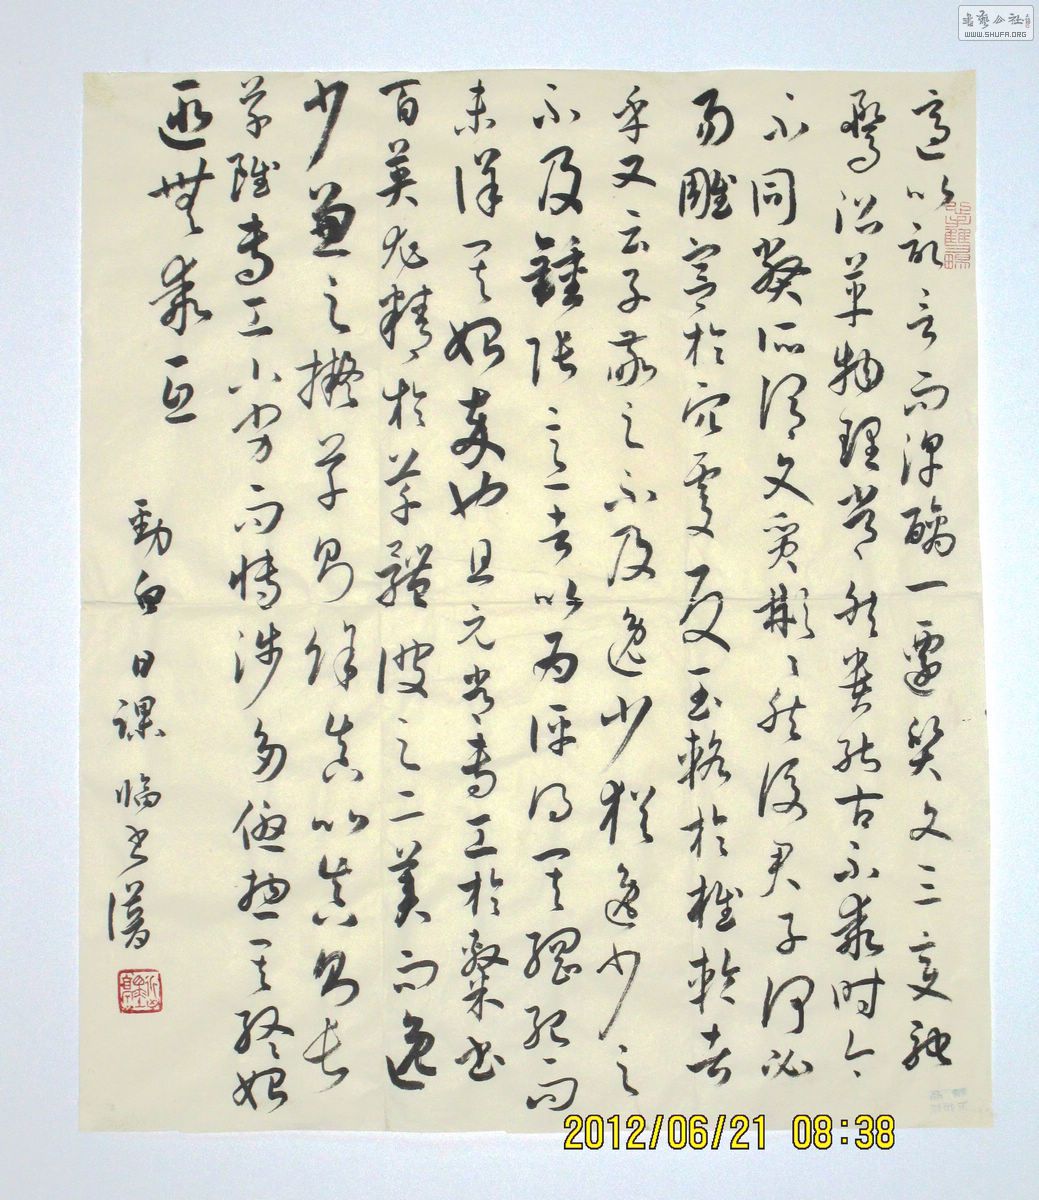 適以記言而淳醨一遷質文三變馳
騖沿革物理常然貴能古不乖時今
不同弊所謂文質彬彬然後君子何必
易雕宮於穴處反玉輅於椎輪者
乎又云子敬之不及逸少猶逸少之
不及鍾張意者以為評得其綱紀而
未詳其始卒也且元常專工於隸書
百英尤精於草體彼之二美而逸
少兼之擬草則餘真比真則長
草雖專工小劣而博涉多優總其終始
匪無乖互
勁白日課臨書譜
WWW.SHUFA.ORG
2012/06/21 08:38